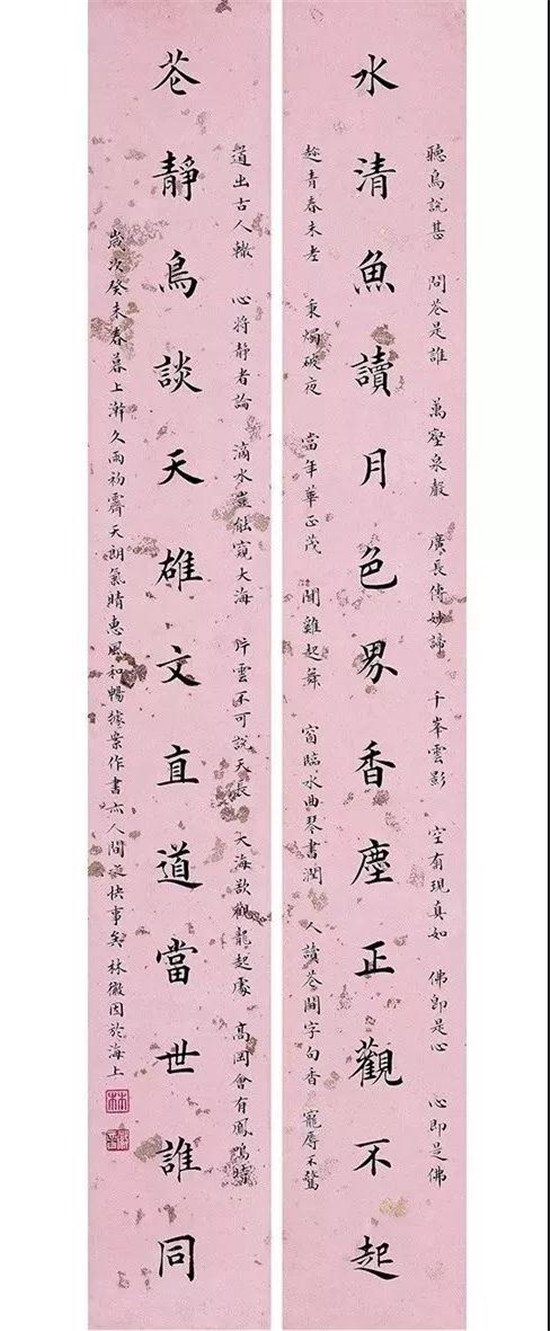 聽鳥說甚 問花是誰 萬壑泉聲 廣長傳妙諦 千峯雲影 空有現真如 佛即是心 心即是佛
水清魚讀月色界香塵正觀不起
趁青春未老 秉燭破夜 當年華正茂 聞雞起舞 窗臨水曲琴書潤 人讀花間字句香 寵辱不驚
道出古人轍 心將靜者論 滴水豈能窺大海 片雲不可說天長 大海欲觀龍起處 高岡會有鳳鳴時
花靜鳥談天雄文直道當世誰同
歲次癸未春暮上澣久雨初霽天朗氣晴惠風和暢據案作書亦人間一快事矣 林徽因於海上
林